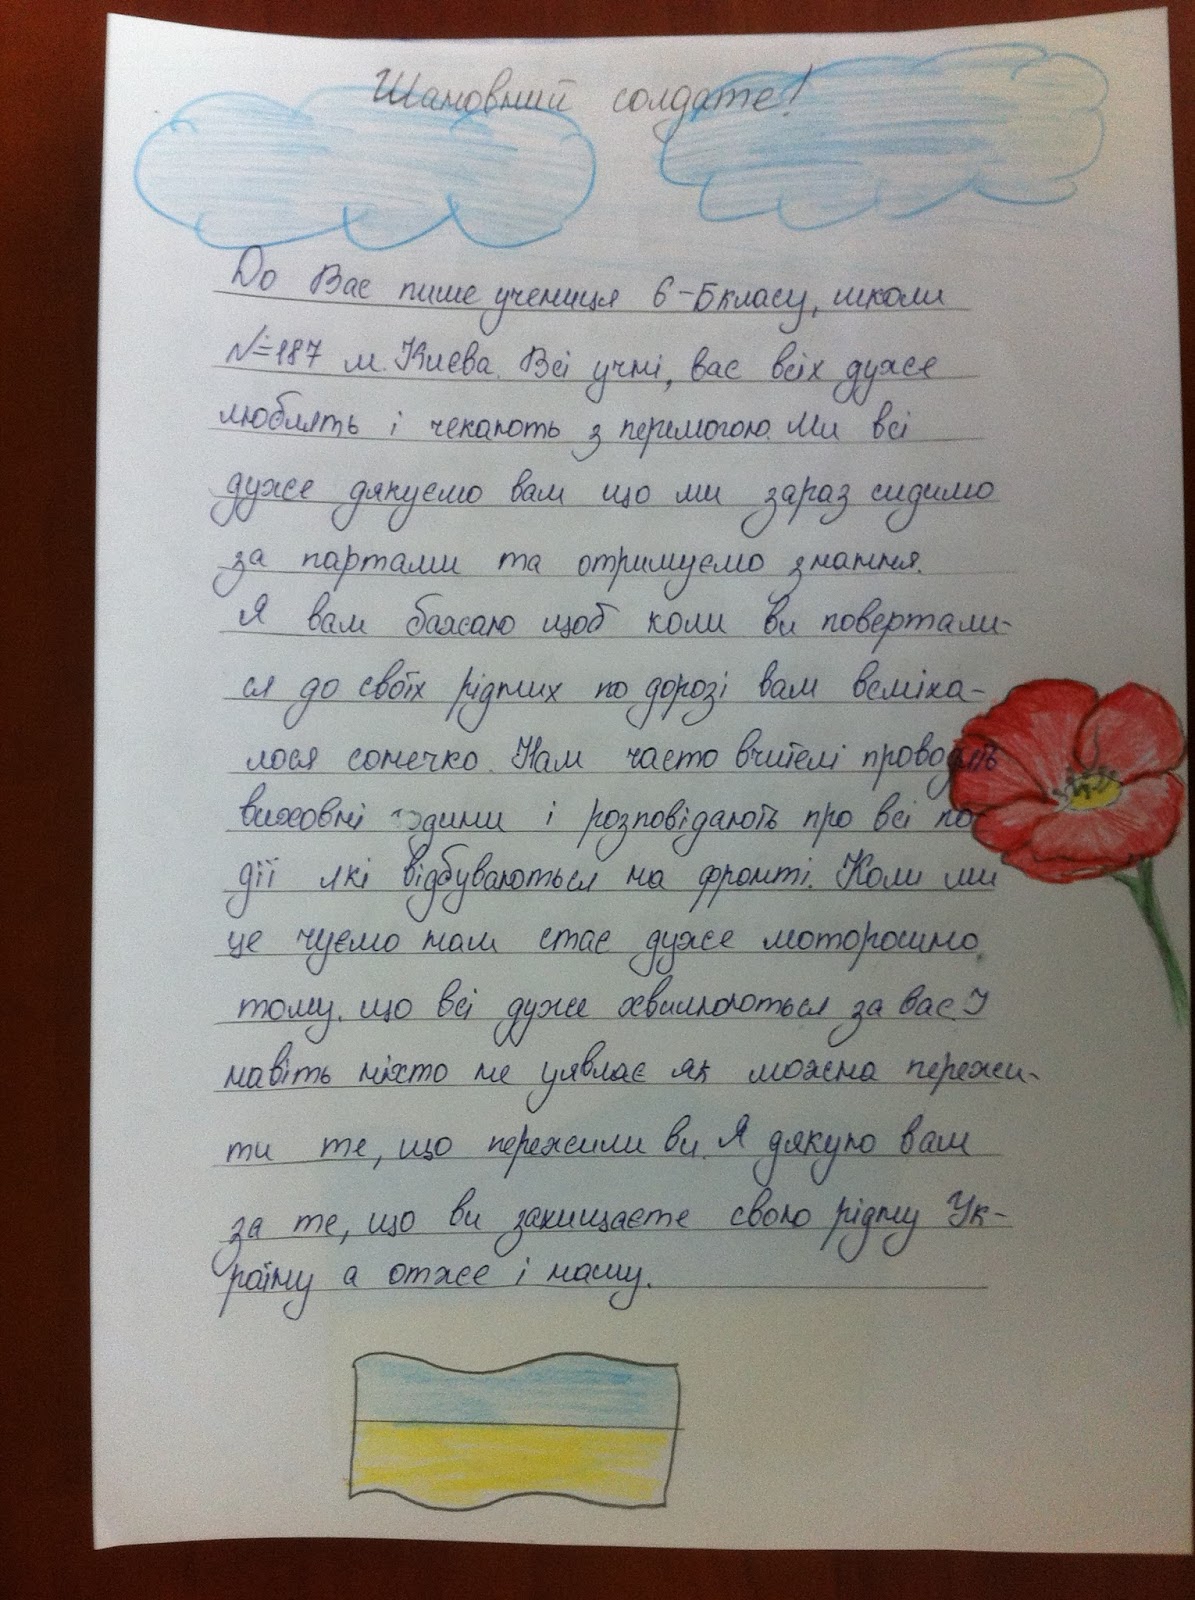 Шановний солдате!
До Вас пише учениця 6-Б класу, школи
№187 м. Києва. Всі учні, вас всіх дуже
люблять і чекають з перемогою. Ми всі
дуже дякуємо вам що ми зараз сидимо
за партами та отримуємо знання.
Я вам бажаю щоб коли ви повертали-
ся до своїх рідних по дорозі вам всміха-
лося сонечко. Нам часто вчителі проводять
виховні години і розповідають про всі по-
дії які відбуваються на фронті. Коли ми
це чуємо нам стає дуже моторошно,
тому, що всі дуже хвилюються за вас. І
навіть ніхто не уявляє як можна пережи-
ти те, що пережили ви. Я дякую вам
за те, що ви захищаєте свою рідну Ук-
раїну а отже і нашу.